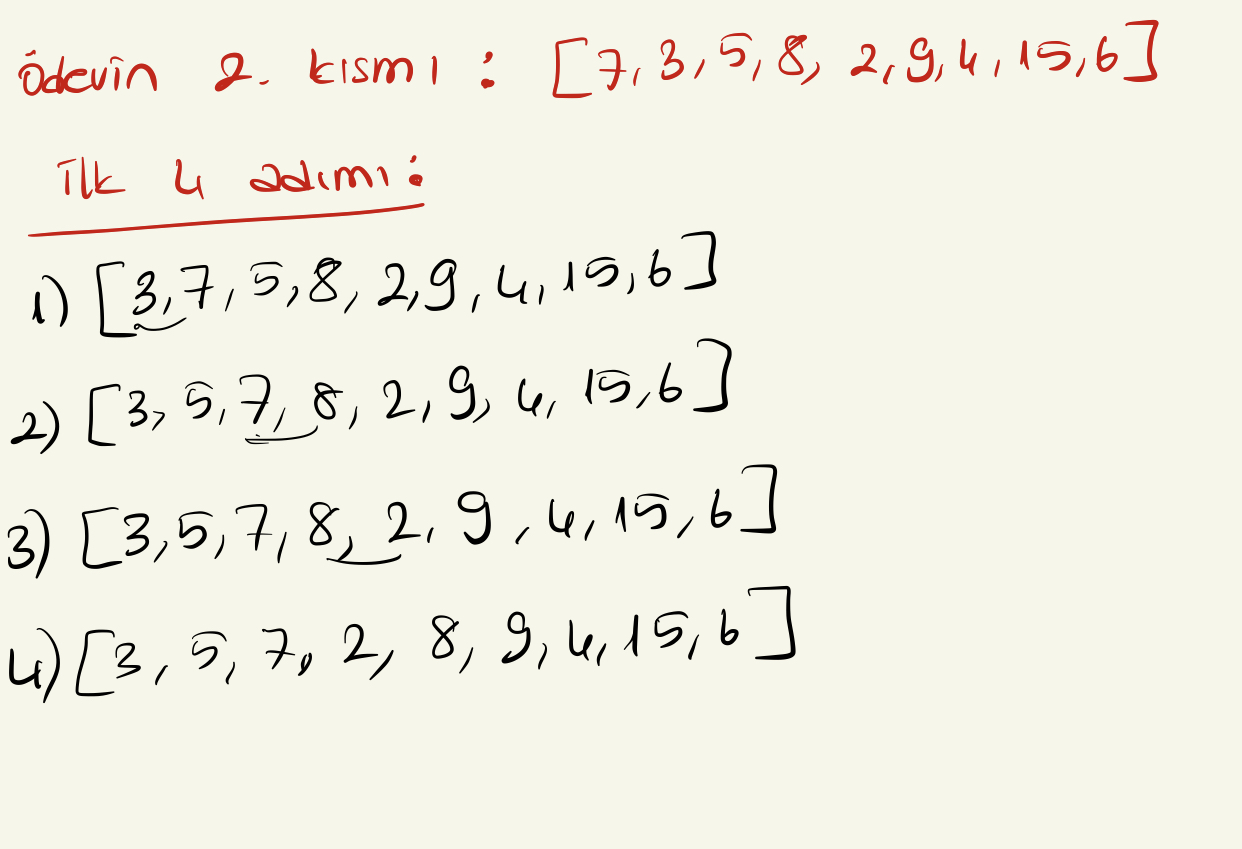 ödevin 2. kısmı : [7, 3, 5, 8, 2, 9, 4, 15, 6]
ilk 4 adımı :
1) [3, 7, 5, 8, 2, 9, 4, 15, 6]
2) [3, 5, 7, 8, 2, 9, 4, 15, 6]
3) [3, 5, 7, 8, 2, 9, 4, 15, 6]
4) [3, 5, 7, 2, 8, 9, 4, 15, 6]